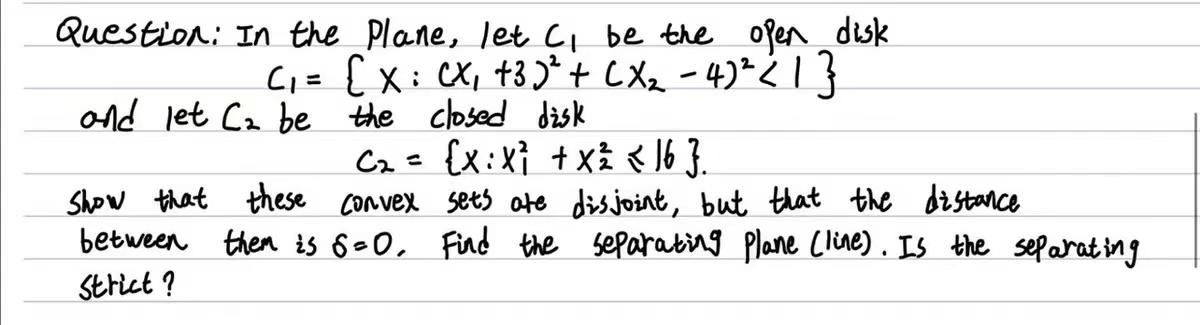 Question: In the Plane, let C₁ be the open disk
C₁ = { X : (X₁ +3)² + (X₂ - 4)² < 1 }
and let C₂ be the closed disk
C₂ = {x : x₁² + x₂² ≤ 16 }.
Show that these convex sets are disjoint, but that the distance
between them is δ=0. Find the separating plane (line). Is the separating
strict ?